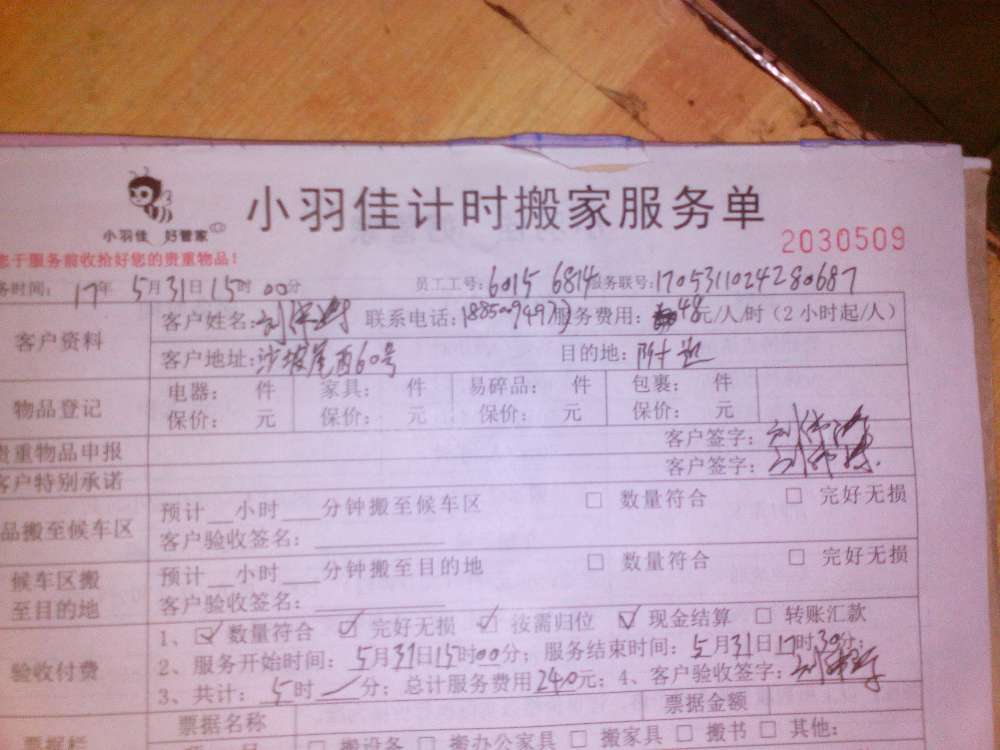 小羽佳 好管家
小羽佳计时搬家服务单
2030509
于服务前收拾好您的贵重物品！
务时间： 17年 5月31日15时00分 员工工号：6015 6814 服务联号：1705311024280687
客户资料
客户姓名： 联系电话： 服务费用：48元/人/时（2小时起/人）
客户地址：沙坡尾西60号 目的地：附近
物品登记
电器： 件 家具： 件 易碎品： 件 包裹： 件
保价： 元 保价： 元 保价： 元 保价： 元
贵重物品申报 客户签字：
客户特别承诺 客户签字：
品搬至候车区
预计__小时___分钟搬至候车区 □ 数量符合 □ 完好无损
客户验收签名：
候车区搬
至目的地
预计__小时___分钟搬至目的地 □ 数量符合 □ 完好无损
客户验收签名：
验收付费
1、☑数量符合 ☑完好无损 ☑按需归位 ☑现金结算 □ 转账汇款
2、服务开始时间：5月31日15时00分；服务结束时间：5月31日17时30分；
3、共计：5时/分；总计服务费用240元；4、客户验收签字：
票据栏
票据名称 票据金额
□ 搬设备 □ 搬办公家具 □ 搬家具 □ 搬书 □ 其他：